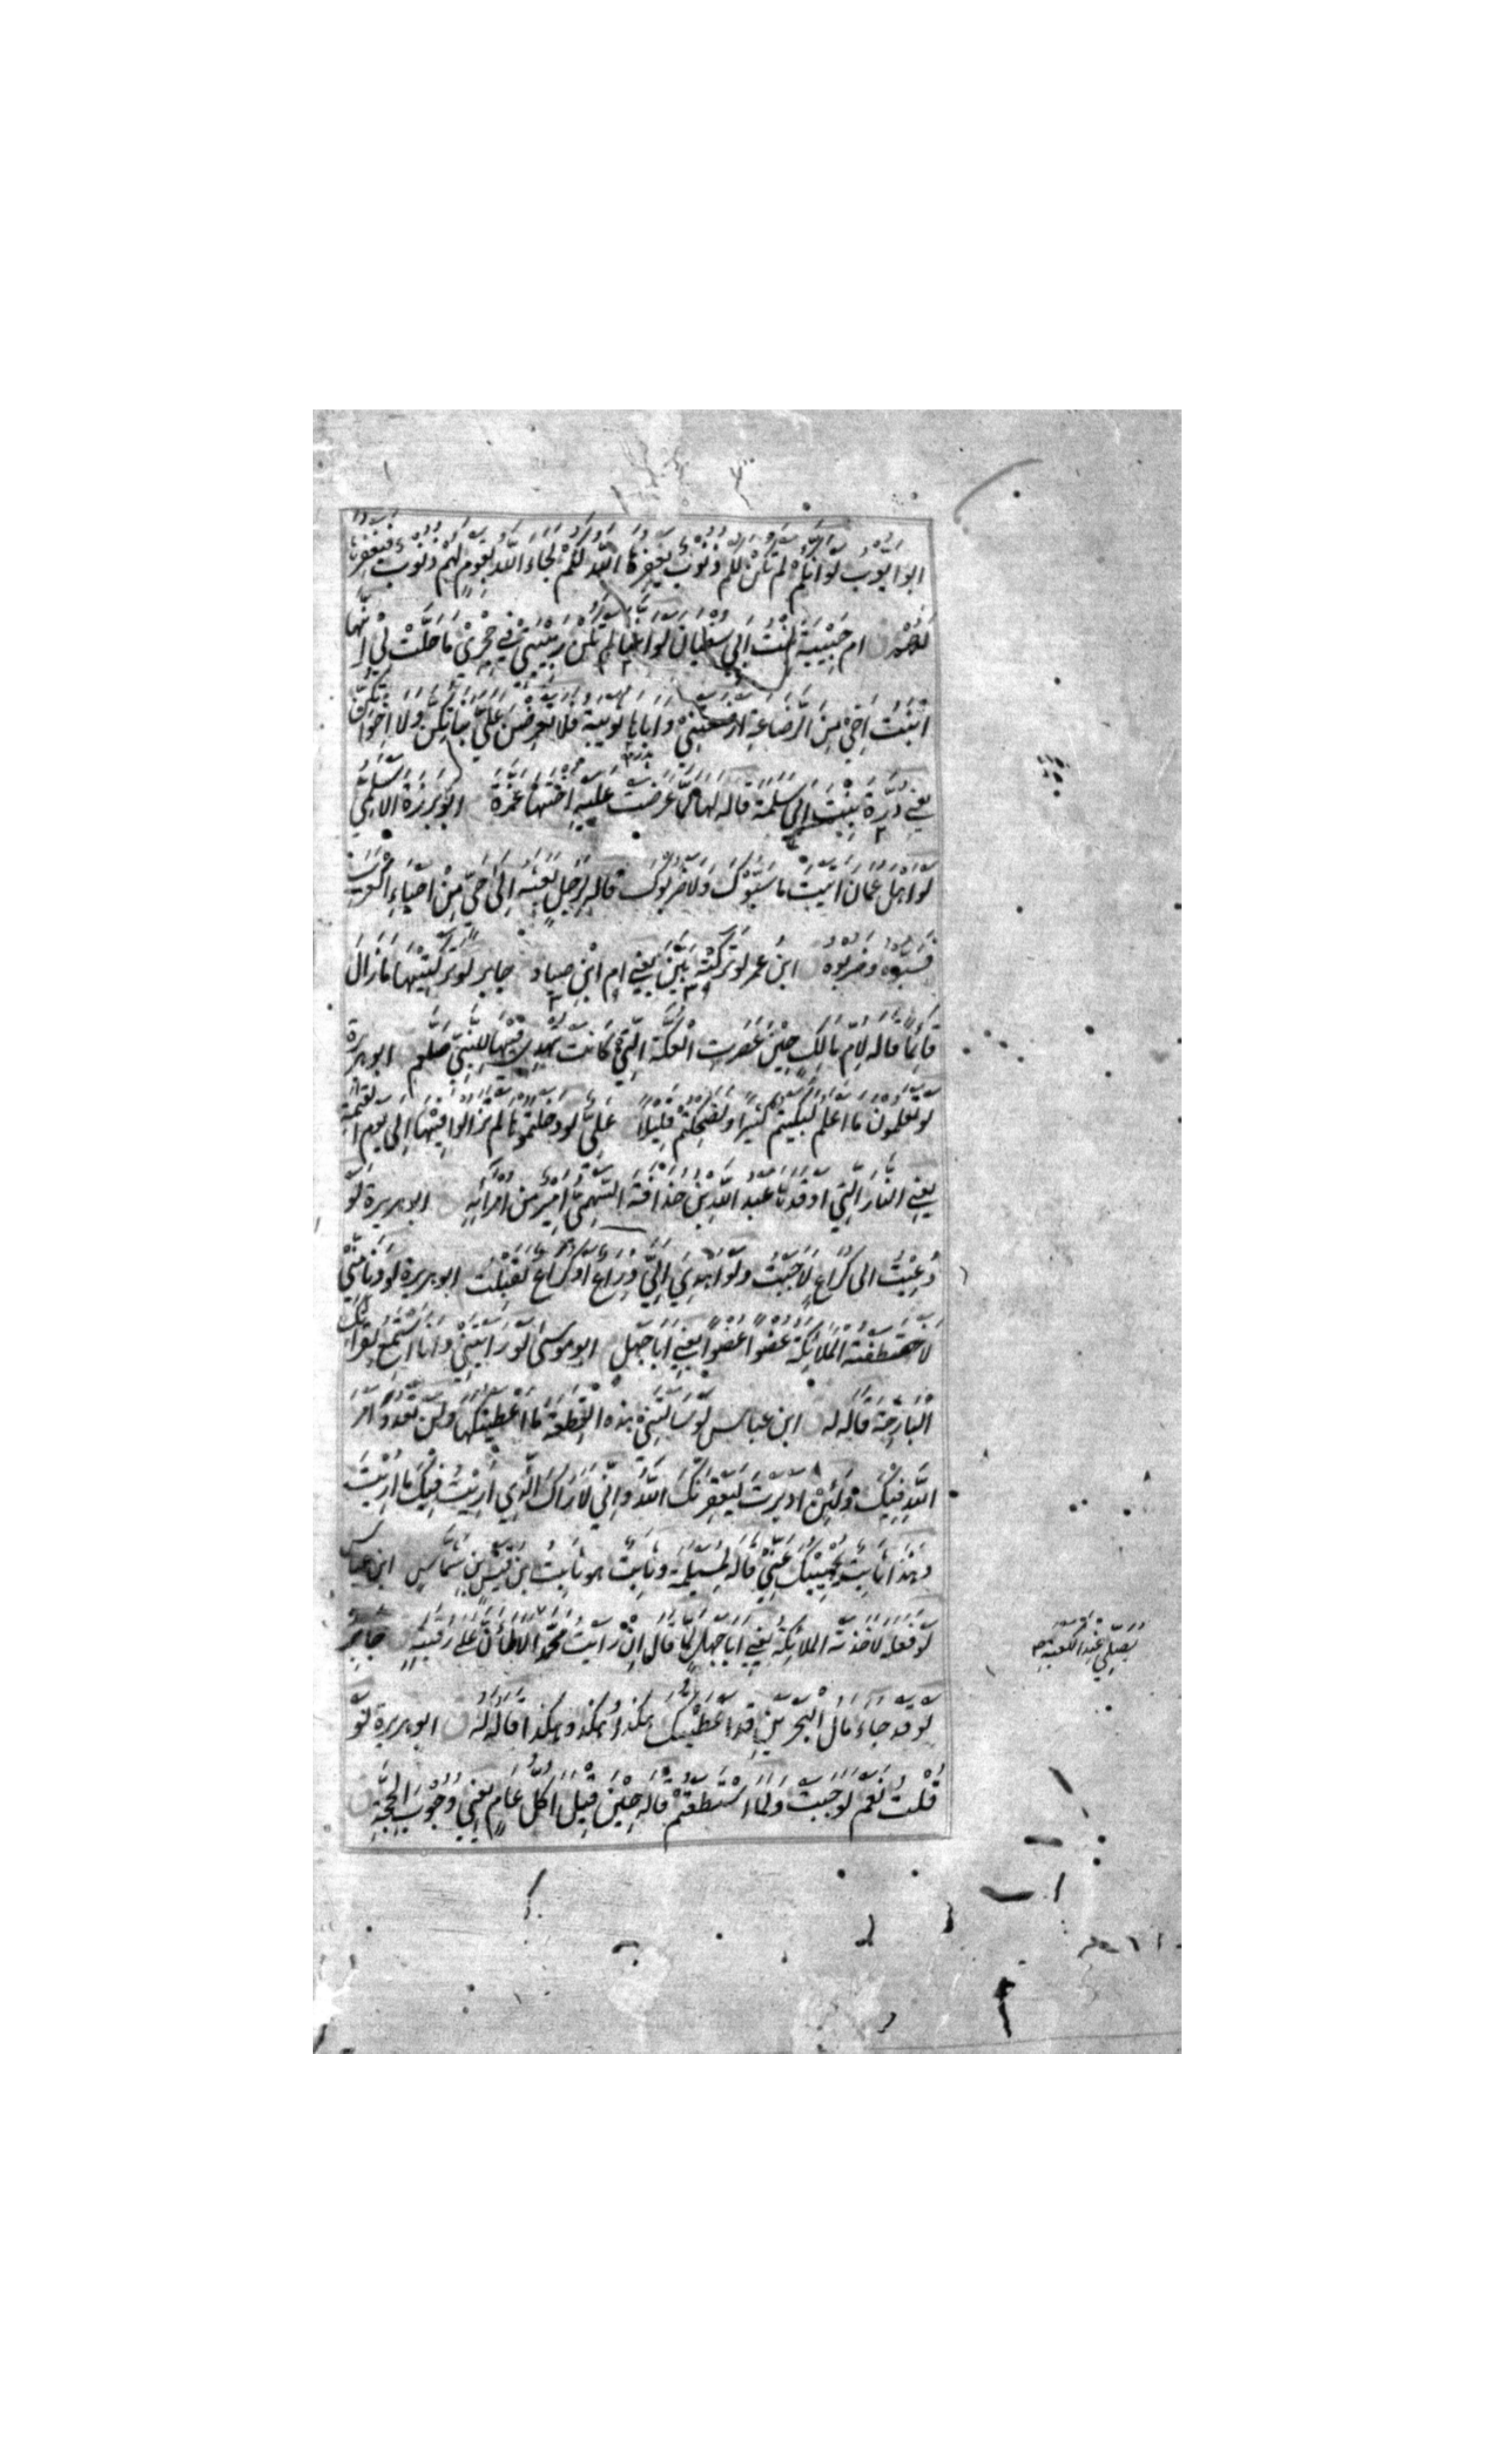 ابو ايّوب لَو انّكم لم تكن لكم ذنوبٌ يغفرها اللّهُ لكُم لجاءَ اللّه بقومٍ لهم ذنوبٌ فيغفرها
لَهُمْ ام حَبِيْبَةَ بنت ابي سفيان لَو انّها لم تكُن رَبِيْبَتِيْ فِي حِجْرِيْ مَا حَلَّتْ لِيْ اِنّهَا
ابنَتُ اَخِيْ مِنَ الرَّضاعَةِ ارضعتنِيْ وَاَبَاهَا ثُوَيْبَةُ فَلا تَعْرِضْنَ عَلَيَّ بَنَاتِكُنَّ وَلَا اَخَوَاتِكُنَّ
يعنِي دُرَّةَ بِنْتَ ابي سَلَمَةَ قاله لها لمّا عَرَضَت عَلَيْهِ اُخْتَهَا عَزَّةَ ابو بَرزَةَ الاسْلَمِيّ
لَوْ اهْلَ عُمَانَ اتَيْتَ مَا سَبُّوْكَ وَلَا ضَرَبُوْكَ قاله لِرَجُلٍ بَعَثَه اِلى حَيٍّ مِنْ اَحْيَاءِ العَرَب
فسَبُّوْه وضربُوه ابن عُمر لَو تَرَكَتْهُ بَيَّنَ يعنِي ام ابْنِ صياد جابر لو تَرَكْتِيْهَا مَا زَالَ
قَائِمًا قاله لِاُمّ مَالِكٍ حِيْنَ عَصَرَتِ الْعُكَّةَ الَّتِيْ كَانَتْ تُهْدِيْ فِيْهَا لِلنَّبِيِّ صَلعم ابو هريرة
لَو تَعْلَمُون مَا اعلَم لَبَكَيتُم كَثِيرًا وَلَضَحِكْتُمْ قَلِيْلًا عَلِيّ لَو دخَلتُمُوهَا لم تزالوا فِيْهَا اِلى يوم القيٰمة
يعنِي النارَ الَّتِي اَوْقَدَهَا عَبْدُ اللّهِ بْنُ حُذَافَةَ السَّهمِيّ اَمِيْرٌ مِنْ اُمَرَائِهِ ابو هريرة لَو
دُعِيْتُ الى كُرَاعٍ لَاَجَبْتُ ولَو اُهْدِيَ اِلَيَّ ذِرَاعٌ اَوْ كُرَاعٌ لَقَبِلْتُ ابو هريرة لو دَنَا مِنِّيْ
لَاخْتَطَفَتْهُ المَلَائِكَةُ عُضْوًا عُضْوًا يعنِي اَبَا جَهْلٍ ابو موسى لَو رَاَيْتَنِيْ وَاَنَا اَسْتَمِعُ لقِرَاءَتِكَ
الْبَارِحَةَ قَالَه لَه ابن عباس لَوْ سَاَلْتَنِيْ هذه الْقِطْعَةَ مَا اعْطَيْتُكَهَا وَلَنْ تَعْدُوَ اَمْرَ
اللّهِ فِيْكَ وَلَئِنْ ادبرتَ لَيَعْقِرَنَّكَ اللّهُ وَاِنِّي لَاَرَاكَ الَّذِي اُرِيْتُ فِيْكَ مَا اُرِيْتُ
وَهٰذَا ثَابِتٌ يُجِيْبُكَ عَنِّيْ قاله لِمُسَيْلمَةَ وثَابِتٌ هو ثَابِتُ بنُ قَيْس بنِ شَمَّاسٍ ابن عباس
لَوْ فَعَلَهُ لَاَخَذَتْه الملائكة يعنِي اَبَا جَهْلٍ لمّا قال اِنْ رَاَيْتُ مُحَمَّدًا لَاَطَاَنَّ عَلٰى رَقَبَتِهِ جَابِرٌ
يُصَلِّيْ عِنْدَ الكعبة
لَو قَد جَاءَ مَالُ الْبَحْرَيْنِ قَد اَعْطَيْتُكَ هكَذَا وهكَذَا وهكَذَا قَالَه لَه ابو هريرة لَو
قُلْتُ نَعَم لَوَجَبَتْ ولَمَا اسْتَطَعْتُمْ قاله حِيْنَ قِيْلَ اَكُلَّ عَامٍ يعْنِي وُجُوْبَ الحَجَّةِ